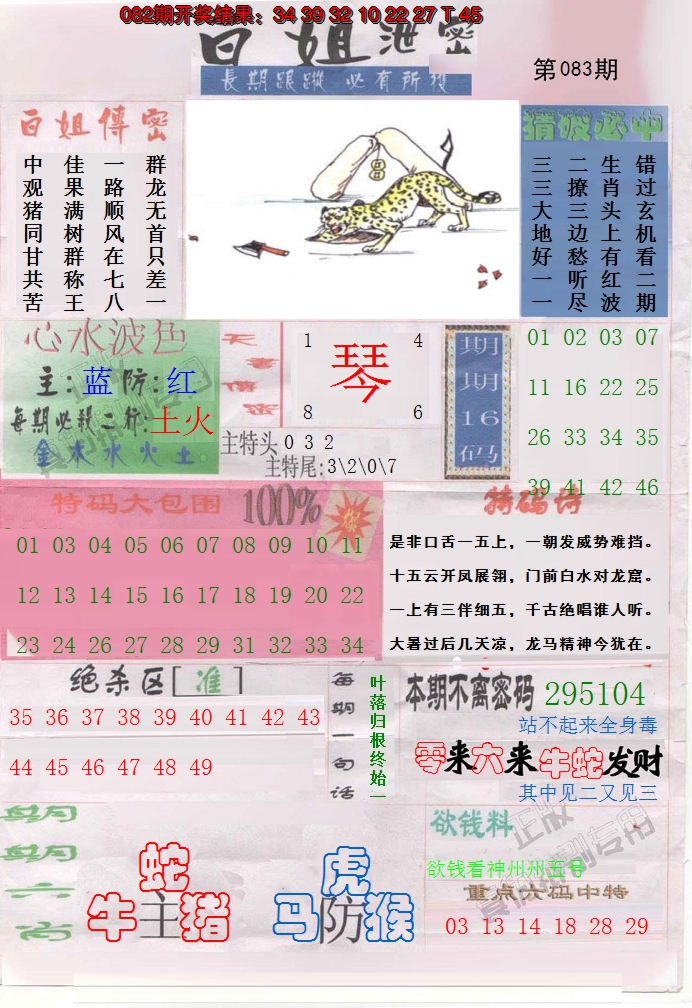 082期开奖结果：34 39 32 10 22 27 T 45
白姐泄密
長期跟蹤 必有所獲
第083期
白姐傳密
群龙无首只差一
一路顺风在七八
佳果满树群称王
中观猪同甘共苦
猜波必中
错过玄机看二期
生肖头上有红波
二撩三边愁听尽
三三大地好一一
心水波色
主：蓝 防：红
每期必殺二行：土火
金木水火土
天書信密
1 4
琴
8 6
主特头032
主特尾：3\2\0\7
期期16码
01 02 03 07
11 16 22 25
26 33 34 35
39 41 42 46
特码大包围 100%
01 03 04 05 06 07 08 09 10 11
12 13 14 15 16 17 18 19 20 22
23 24 26 27 28 29 31 32 33 34
特码诗
是非口舌一五上，一朝发威势难挡。
十五云开凤展翎，门前白水对龙窟。
一上有三伴细五，千古绝唱谁人听。
大暑过后几天凉，龙马精神今犹在。
绝杀区[准]
35 36 37 38 39 40 41 42 43
44 45 46 47 48 49
每期一句话
叶落归根终始一
本期不离密码 295104
站不起来全身毒
零来六来牛蛇发财
其中见二又见三
每期六肖
蛇
牛主猪
虎
马防猴
欲钱料
欲钱看神州州五号
重点六码中特
03 13 14 18 28 29